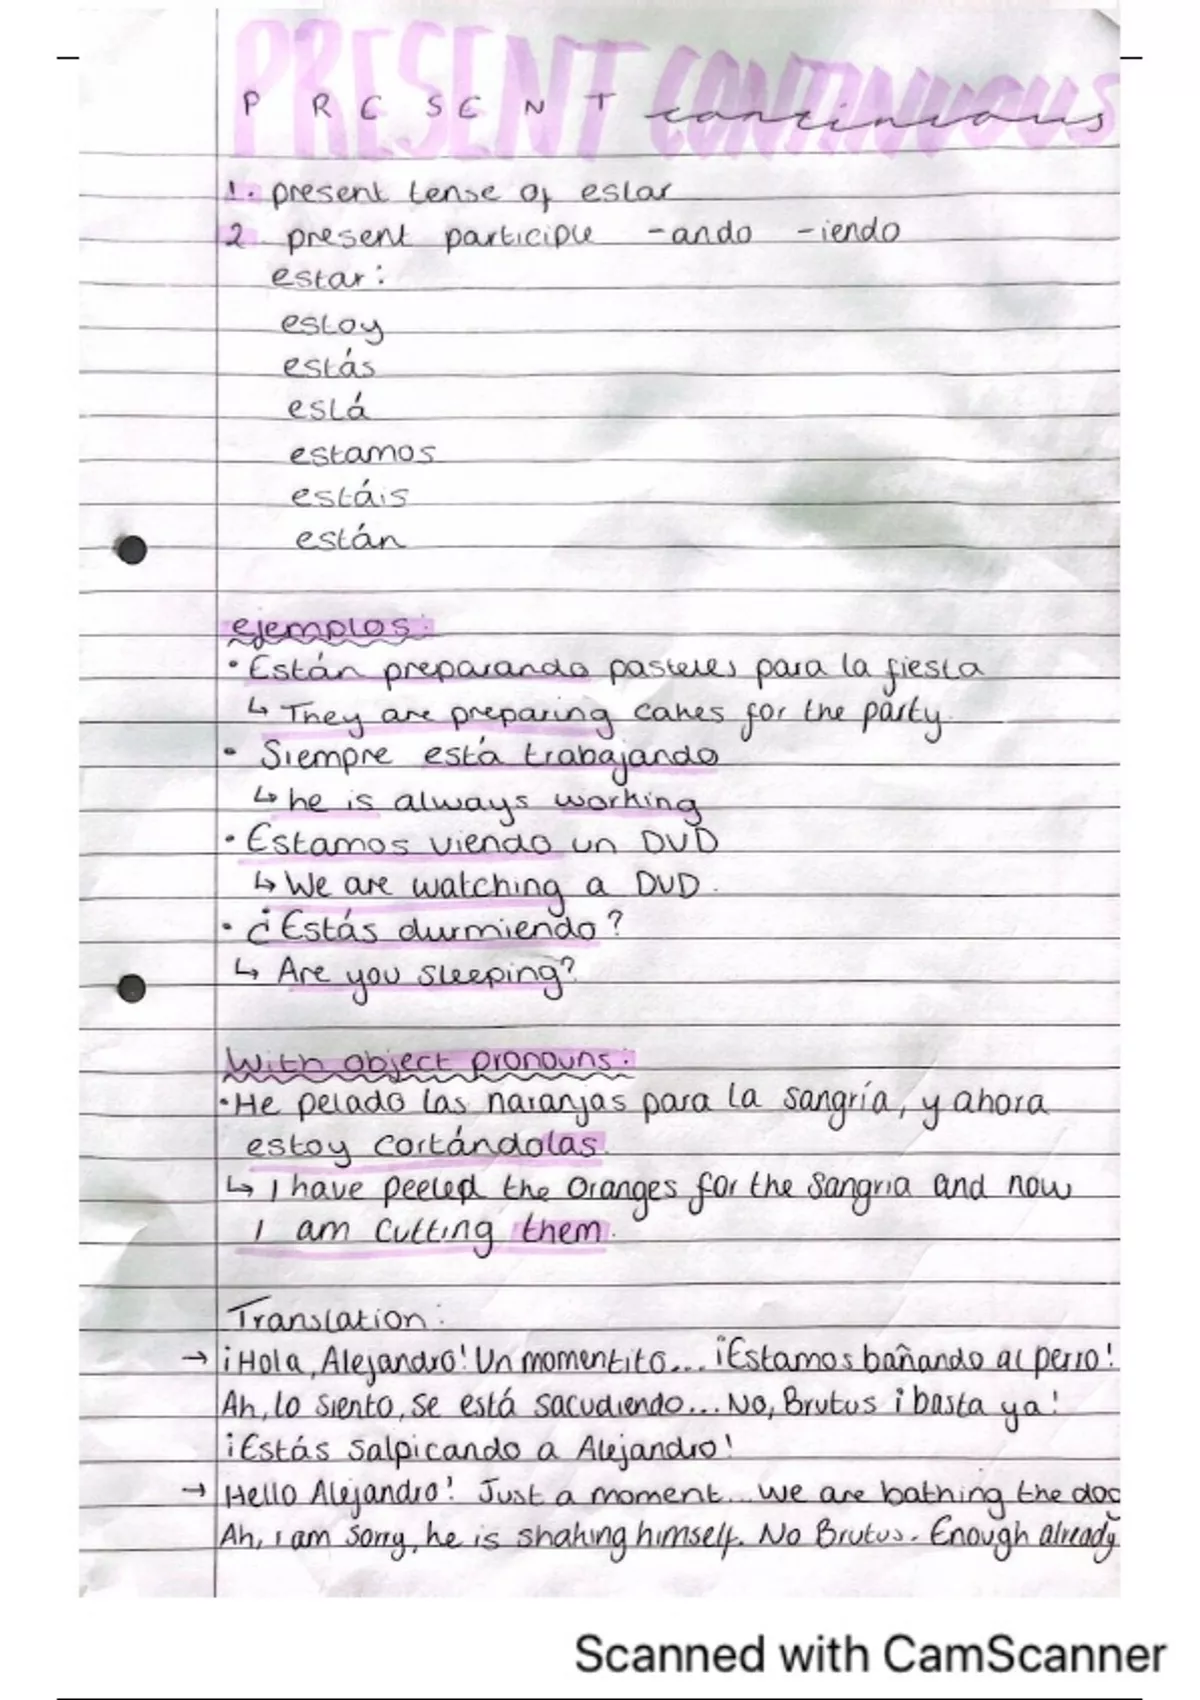 PRESENT CONTINUOUS
PRESENT continuous
1. present tense of estar
2. present participle -ando -iendo
estar:
estoy
estás
está
estamos
estáis
están
ejemplos:
• Están preparando pasteles para la fiesta
↳ They are preparing cakes for the party.
• Siempre está trabajando
↳ he is always working
• Estamos viendo un DVD
↳ We are watching a DVD.
• ¿Estás durmiendo?
↳ Are you sleeping?
With object pronouns:
• He pelado las naranjas para la sangría, y ahora
estoy cortándolas.
↳ I have peeled the oranges for the sangria and now
I am cutting them.
Translation:
→ ¡Hola, Alejandro! Un momentito... ¡Estamos bañando al perro!
Ah, lo siento, se está sacudiendo... No, Brutus ¡basta ya!
¡Estás salpicando a Alejandro!
→ Hello Alejandro! Just a moment... we are bathing the dog
Ah, i am sorry, he is shaking himself. No Brutus. Enough already
Scanned with CamScanner